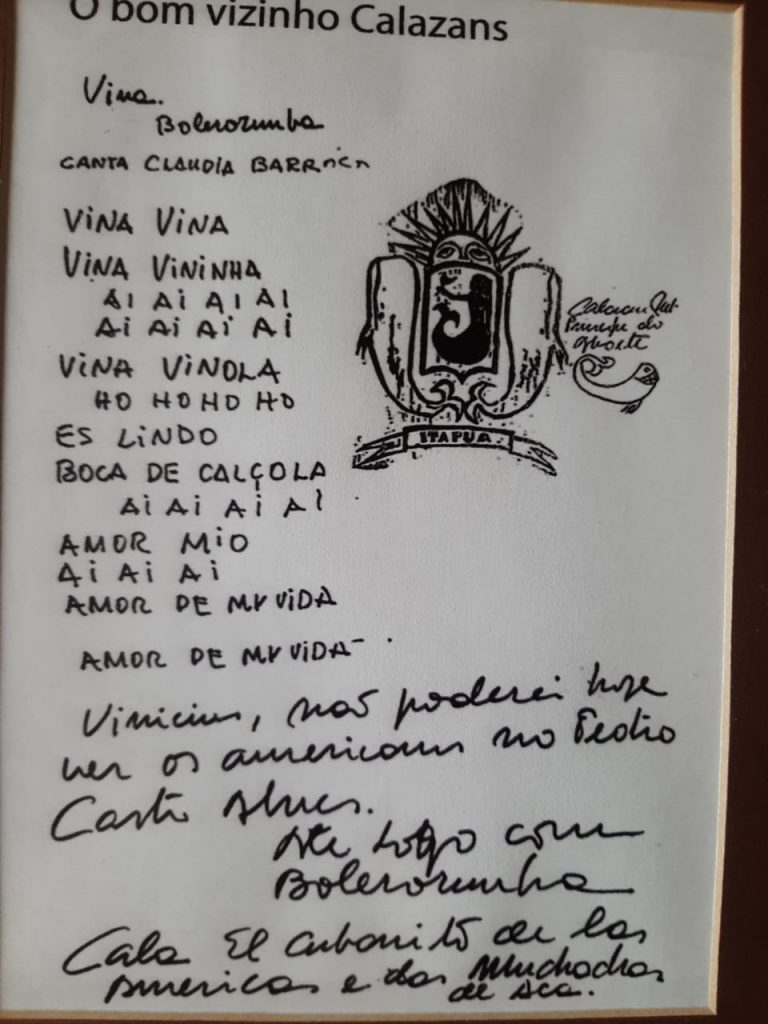 O bom vizinho Calazans
Vina.
Bolerorumba
CANTA CLAUDIA BARROCA
VINA VINA
VINA VININHA
AI AI AI AI
AI AI AI AI
VINA VINOLA
HO HO HO HO
ES LINDO
BOCA DE CALÇOLA
AI AI AI AI
AMOR MIO
AI AI AI
AMOR DE MY VIDA
AMOR DE MY VIDA
ITAPUA
Principe do
Vinicius, não poderei hoje
ver os americanos no Teatro
Castro Alves.
Até logo com
Bolerorumba
Cala El cubanito de las
Americas e das Muchachas
de Aca.